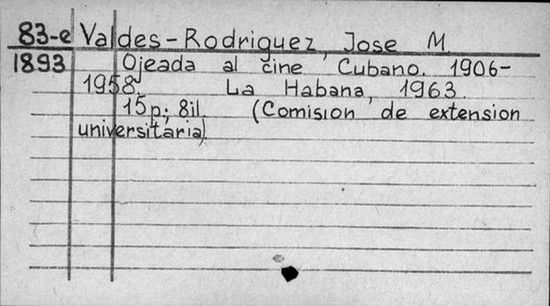 83-e Valdes-Rodriguez, Jose M.
1893 Ojeada al cine Cubano. 1906-
1958. La Habana, 1963.
15p.; 8il. (Comision de extension
universitaria)